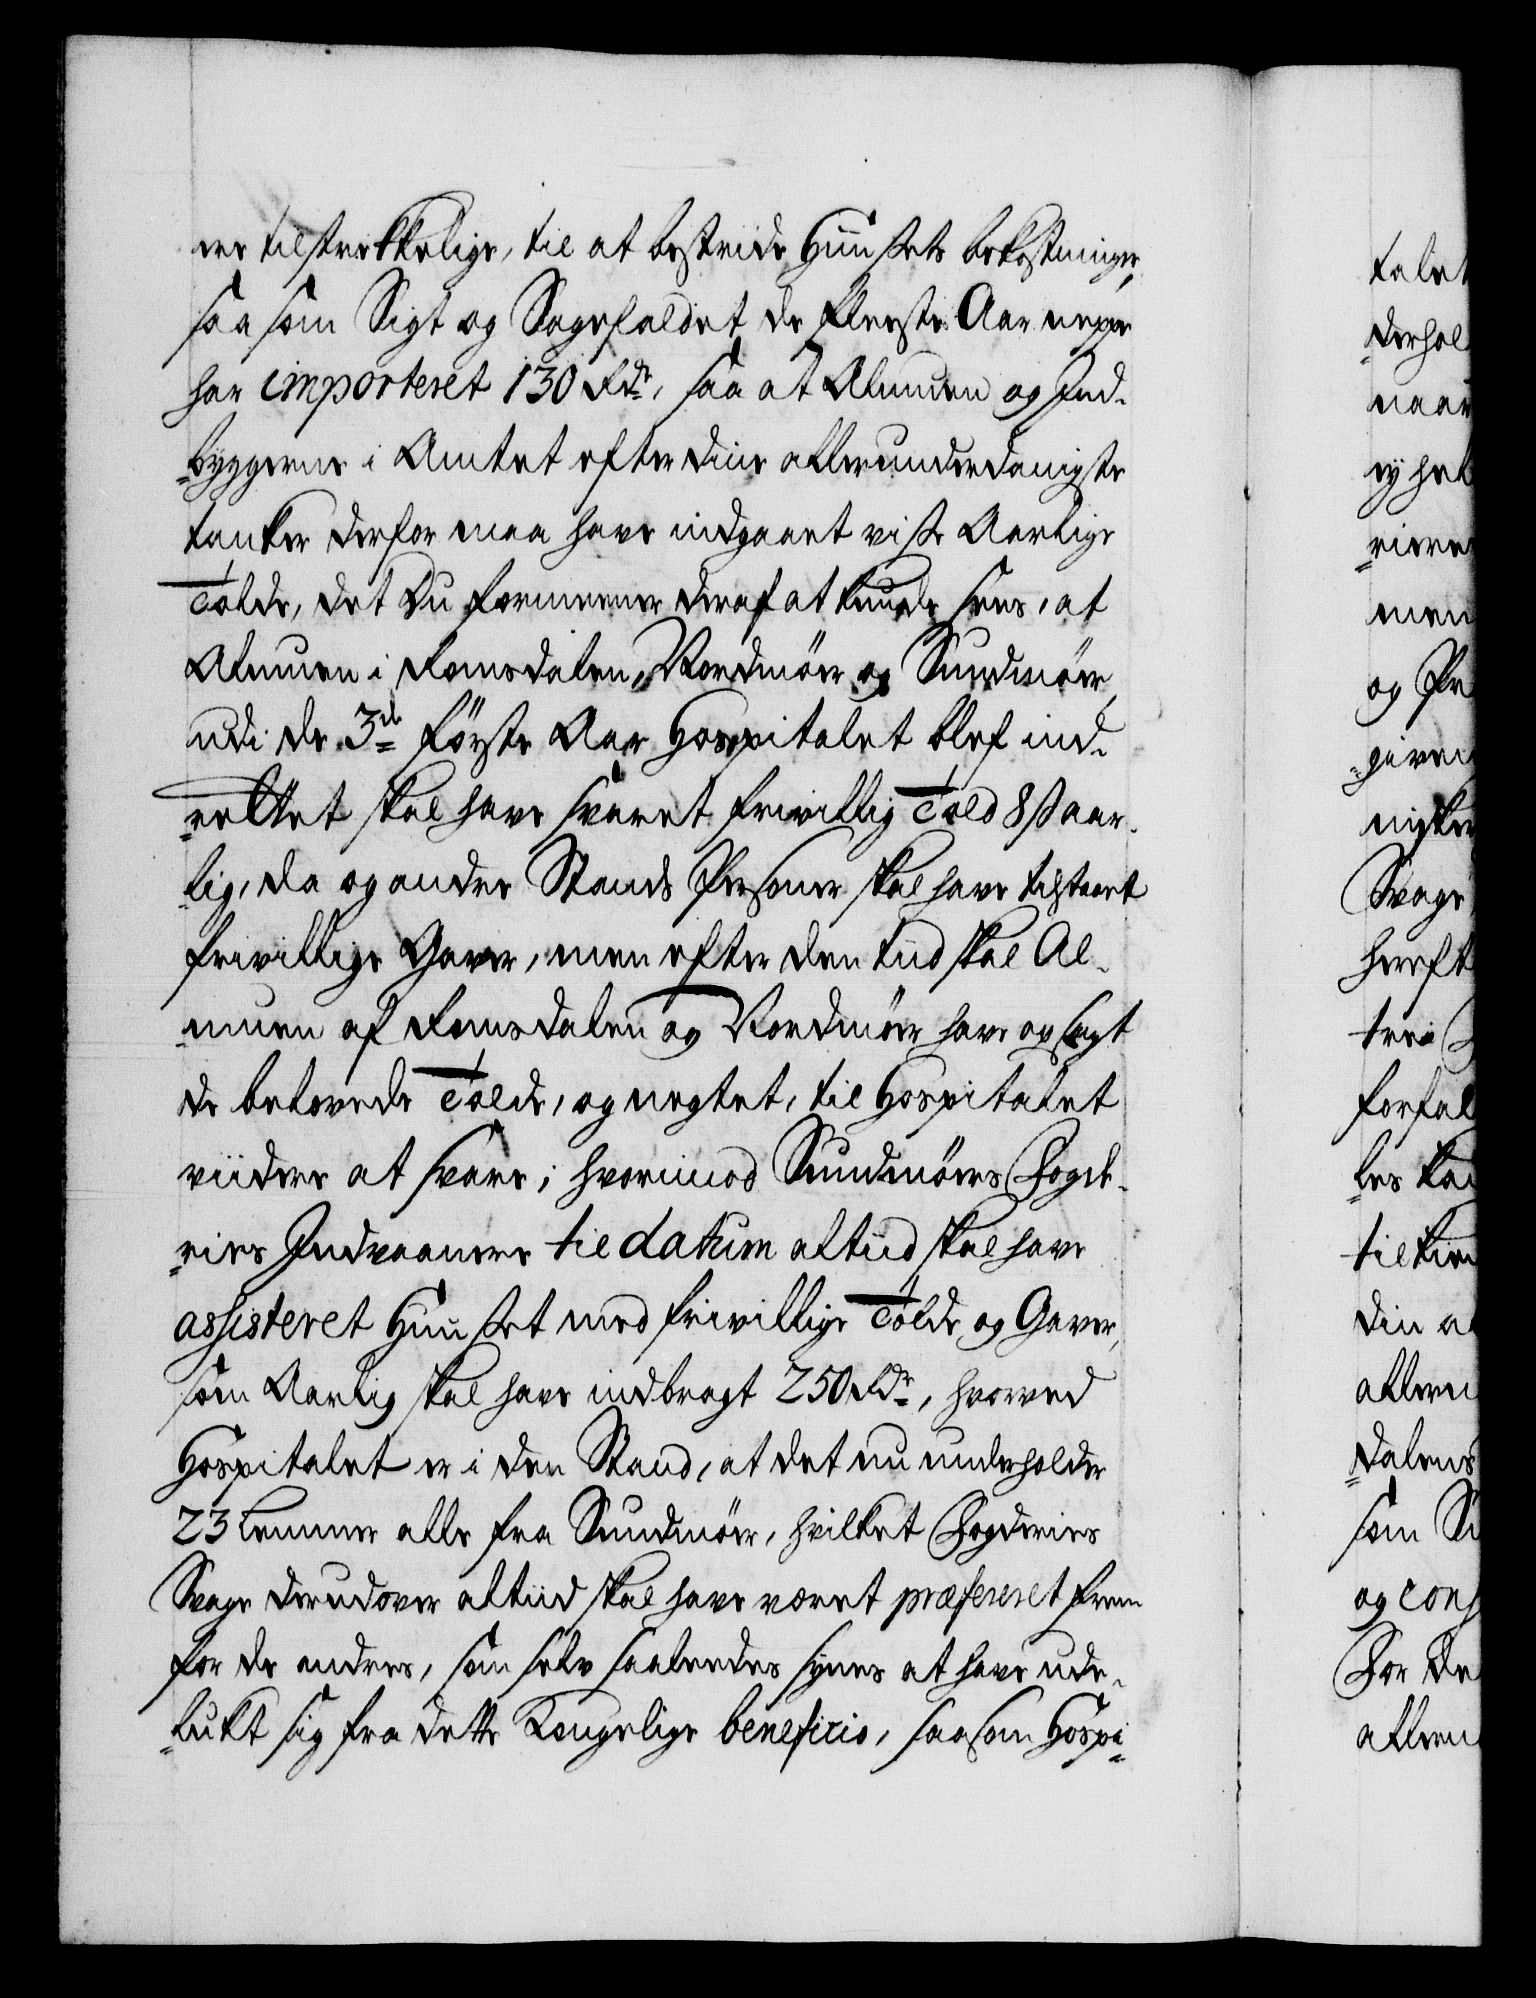 ere tilstrekkelige, til at bestride Huusets bekostninger,
saa som Sigt og Sagefaldet de fleeste Aar neppe
har importeret 130 Rdr, saa at Almuen og Ind-
byggerne i Amtet efter dine allerunderdanigste
tanker derfor maa have indgaaet visse Aarlige
Tolde, det Du formeener deraf at kunde sees, at
Almuen i Romsdalen, Nordmöer og Sundmöer,
udi de 3de förste Aar Hospitalet blef ind-
rettet skal have svaret frivillig Told 8 ß aar-
lig, da og andre Stands Personer skal have tilstaaet
frivillige Gaver, men efter den tiid skal Al-
muen af Romsdalen og Nordmöer have opsagt
de belovede Tolde, og negtet, til Hospitalet
viidere at svare; hvorimod Sundmöers Fogde-
ries Indvaanere til datum altiid skal have
assisteret Huuset med frivillige Tolde og Gaver,
som Aarlig skal have indbragt 250 Rdr, hvorved
Hospitalet er i den Stand, at det nu underholder
23 Lemmer alle fra Sundmöer, hvilket Fogderies
Svage derudover altiid skal have været præfereret frem
for de andres, som selv saaledes synes at have ude-
lukt sig fra dette Kongelige beneficio, saasom Hospi-
talet
derhol
naar
ey hel
men
og Pr
given
Svage
hereft
forfal
les
til
din a
allern
dalens
som
og conf
For de
allern